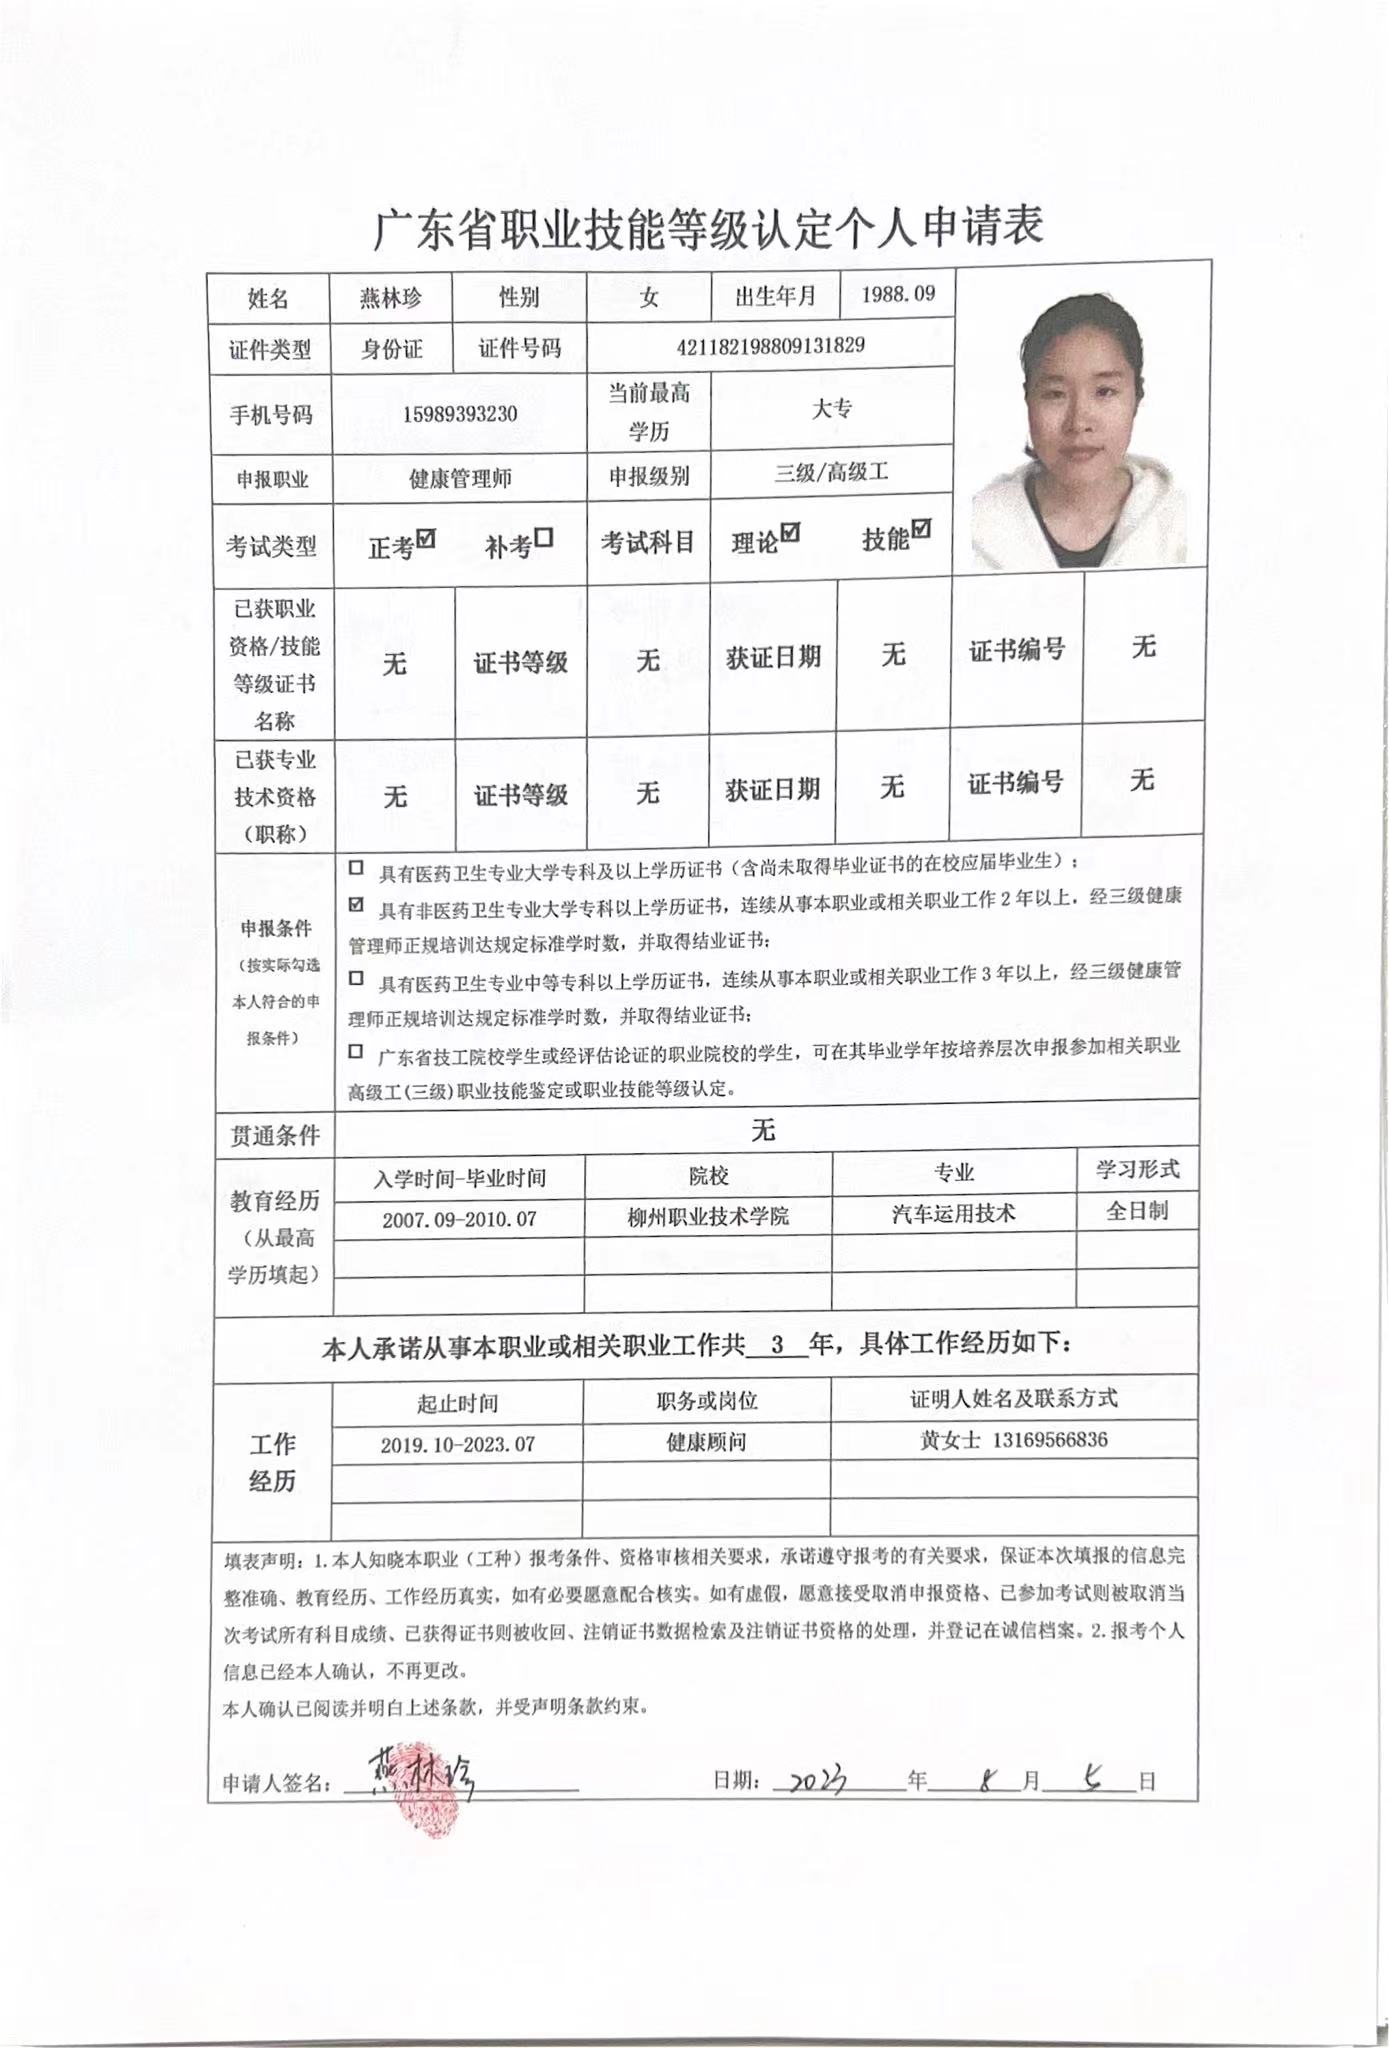 广东省职业技能等级认定个人申请表
姓名 燕林珍 性别 女 出生年月 1988.09
证件类型 身份证 证件号码 421182198809131829
手机号码 15989393230 当前最高学历 大专
申报职业 健康管理师 申报级别 三级/高级工
考试类型 正考☑ 补考☐ 考试科目 理论☑ 技能☑
已获职业资格/技能等级证书名称 无 证书等级 无 获证日期 无 证书编号 无
已获专业技术资格（职称） 无 证书等级 无 获证日期 无 证书编号 无
申报条件（按实际勾选本人符合的申报条件）
☐ 具有医药卫生专业大学专科及以上学历证书（含尚未取得毕业证书的在校应届毕业生）；
☑ 具有非医药卫生专业大学专科以上学历证书，连续从事本职业或相关职业工作2年以上，经三级健康
管理师正规培训达规定标准学时数，并取得结业证书；
☐ 具有医药卫生专业中等专科以上学历证书，连续从事本职业或相关职业工作3年以上，经三级健康管
理师正规培训达规定标准学时数，并取得结业证书；
☐ 广东省技工院校学生或经评估论证的职业院校的学生，可在其毕业学年按培养层次申报参加相关职业
高级工(三级)职业技能鉴定或职业技能等级认定。
贯通条件 无
教育经历（从最高学历填起）
入学时间-毕业时间 院校 专业 学习形式
2007.09-2010.07 柳州职业技术学院 汽车运用技术 全日制
本人承诺从事本职业或相关职业工作共 3 年，具体工作经历如下：
工作经历
起止时间 职务或岗位 证明人姓名及联系方式
2019.10-2023.07 健康顾问 黄女士 13169566836
填表声明：1.本人知晓本职业（工种）报考条件、资格审核相关要求，承诺遵守报考的有关要求，保证本次填报的信息完
整准确、教育经历、工作经历真实，如有必要愿意配合核实。如有虚假，愿意接受取消申报资格、已参加考试则被取消当
次考试所有科目成绩、已获得证书则被收回、注销证书数据检索及注销证书资格的处理，并登记在诚信档案。2.报考个人
信息已经本人确认，不再更改。
本人确认已阅读并明白上述条款，并受声明条款约束。
申请人签名：燕林珍 日期：2023年8月5日